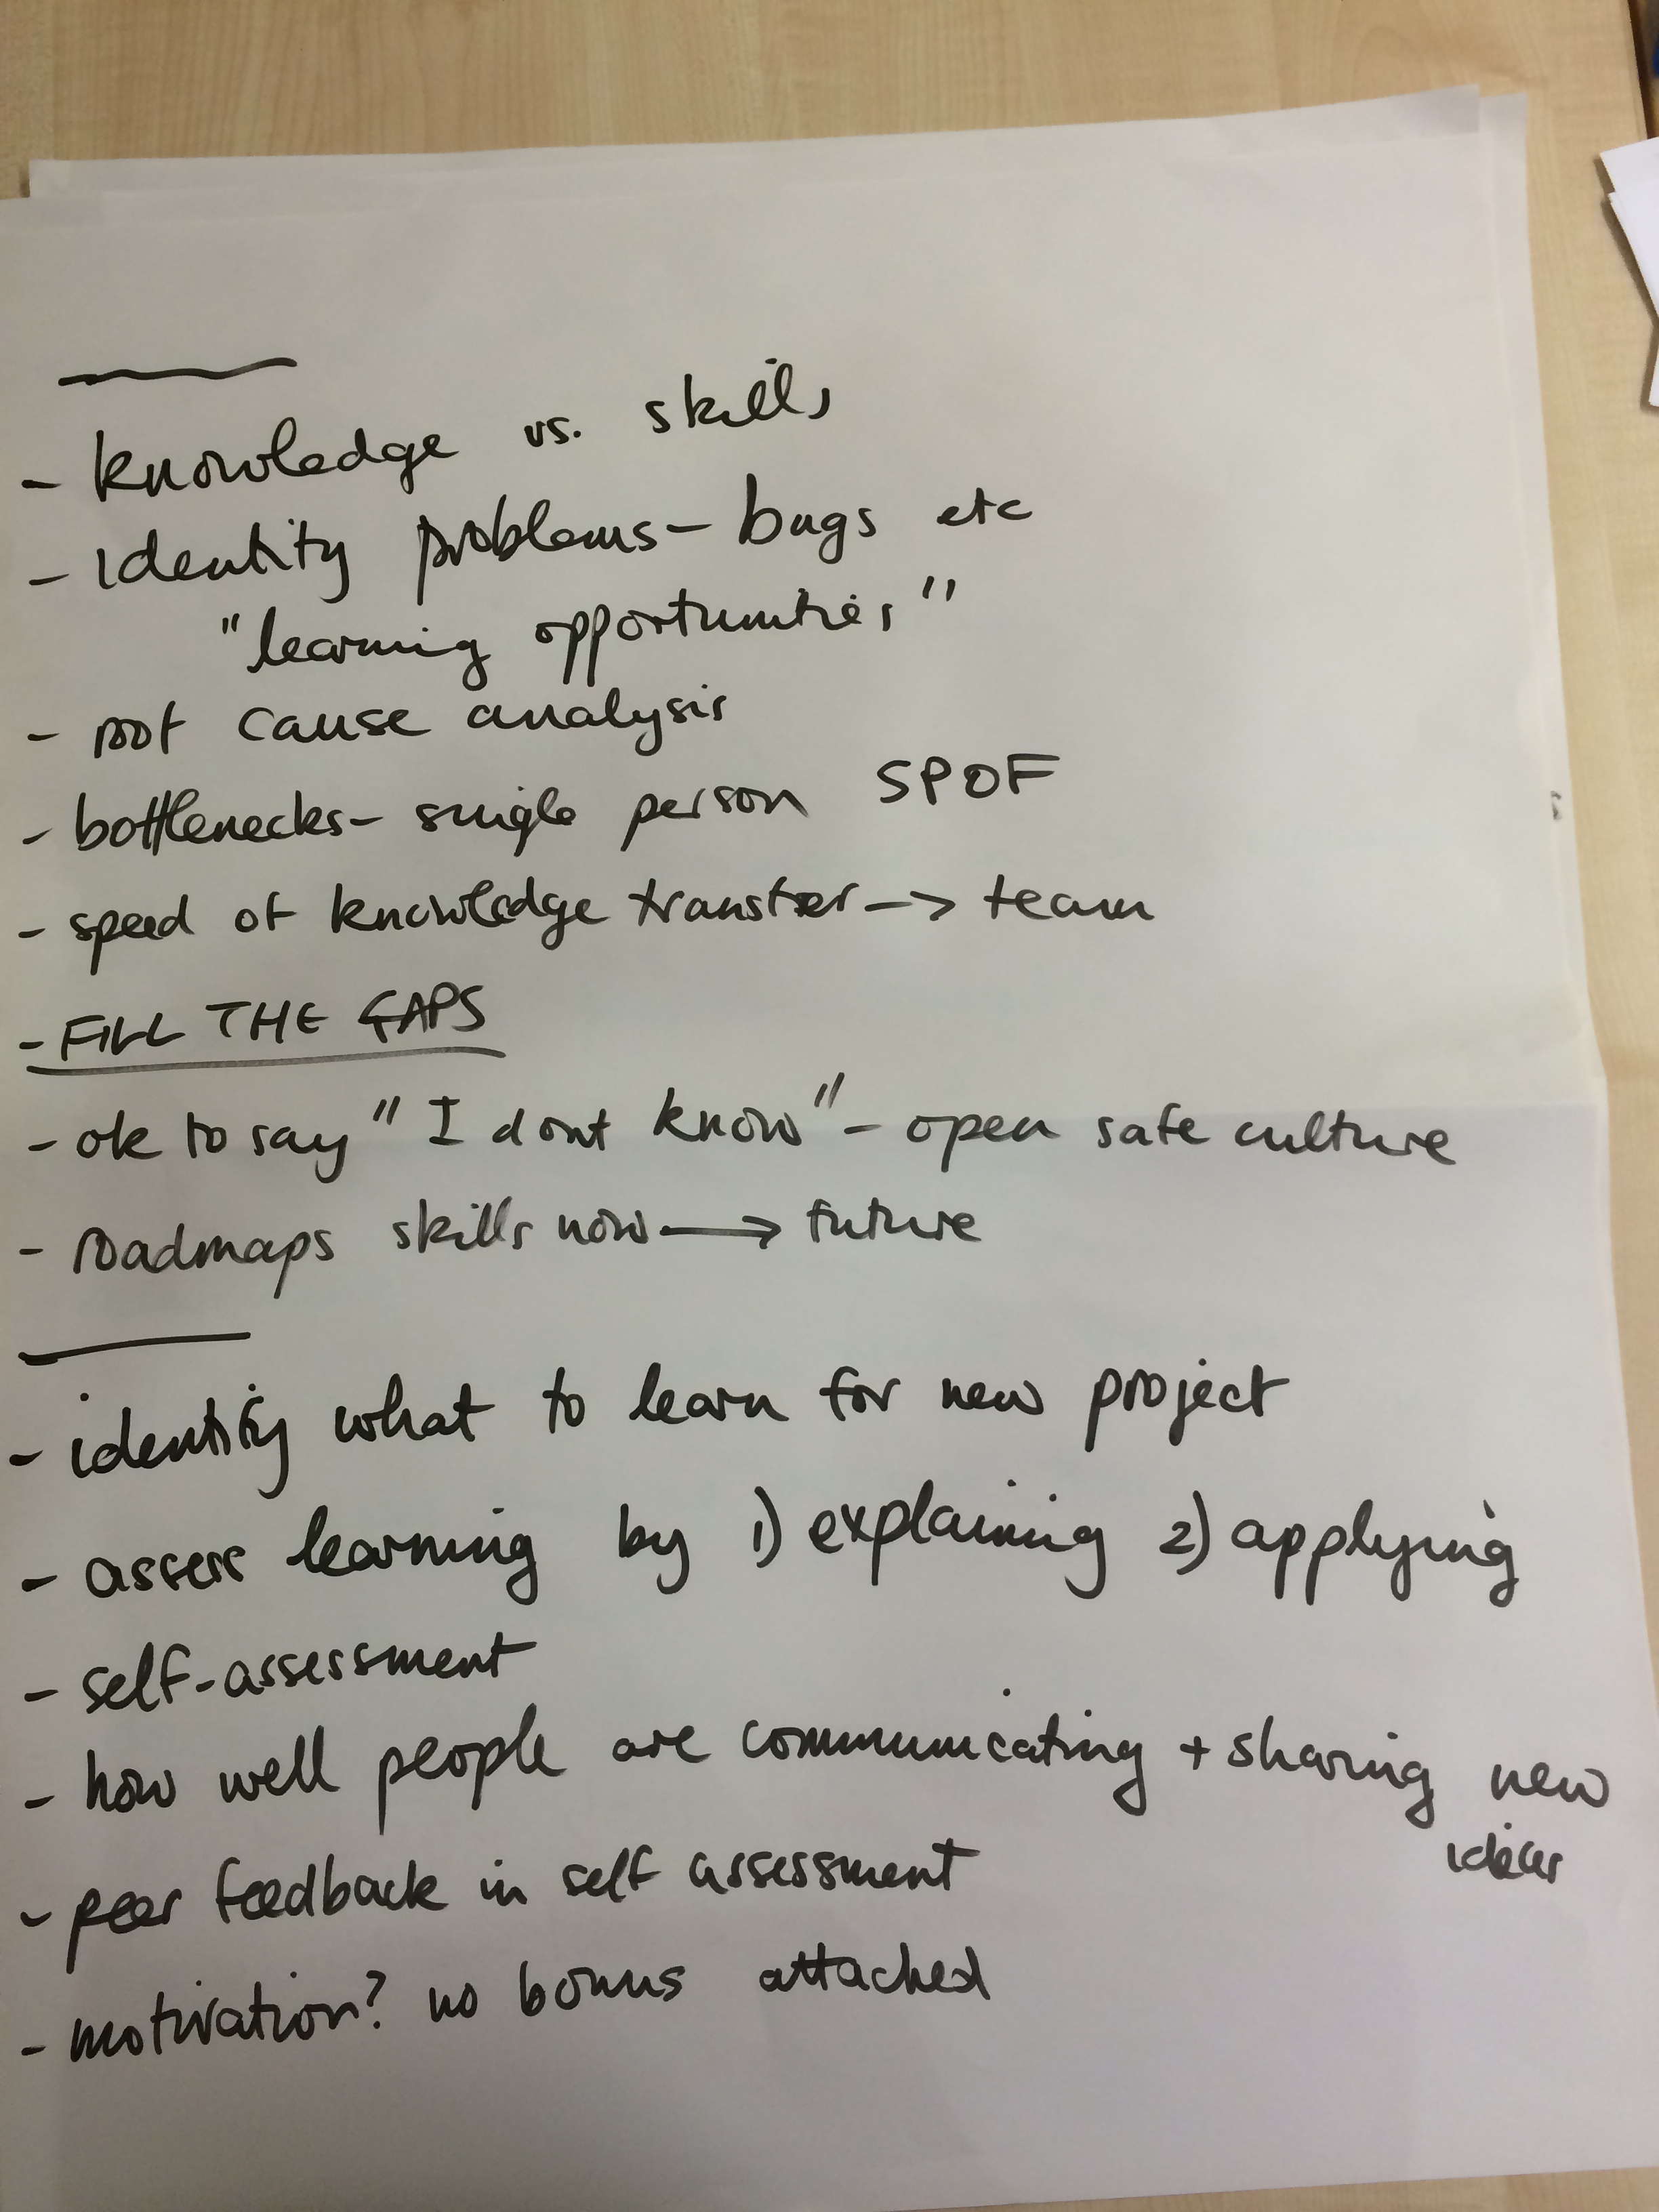 - knowledge vs. skills
- identify problems - bugs etc
"learning opportunities"
- root cause analysis
- bottlenecks - single person SPOF
- speed of knowledge transfer -> team
- FILL THE GAPS
- ok to say "I dont know" - open safe culture
- roadmaps skills now -> future
- identify what to learn for new project
- assess learning by 1) explaining 2) applying
- self-assessment
- how well people are communicating + sharing new
ideas
- peer feedback in self assessment
- motivation? no bonus attached